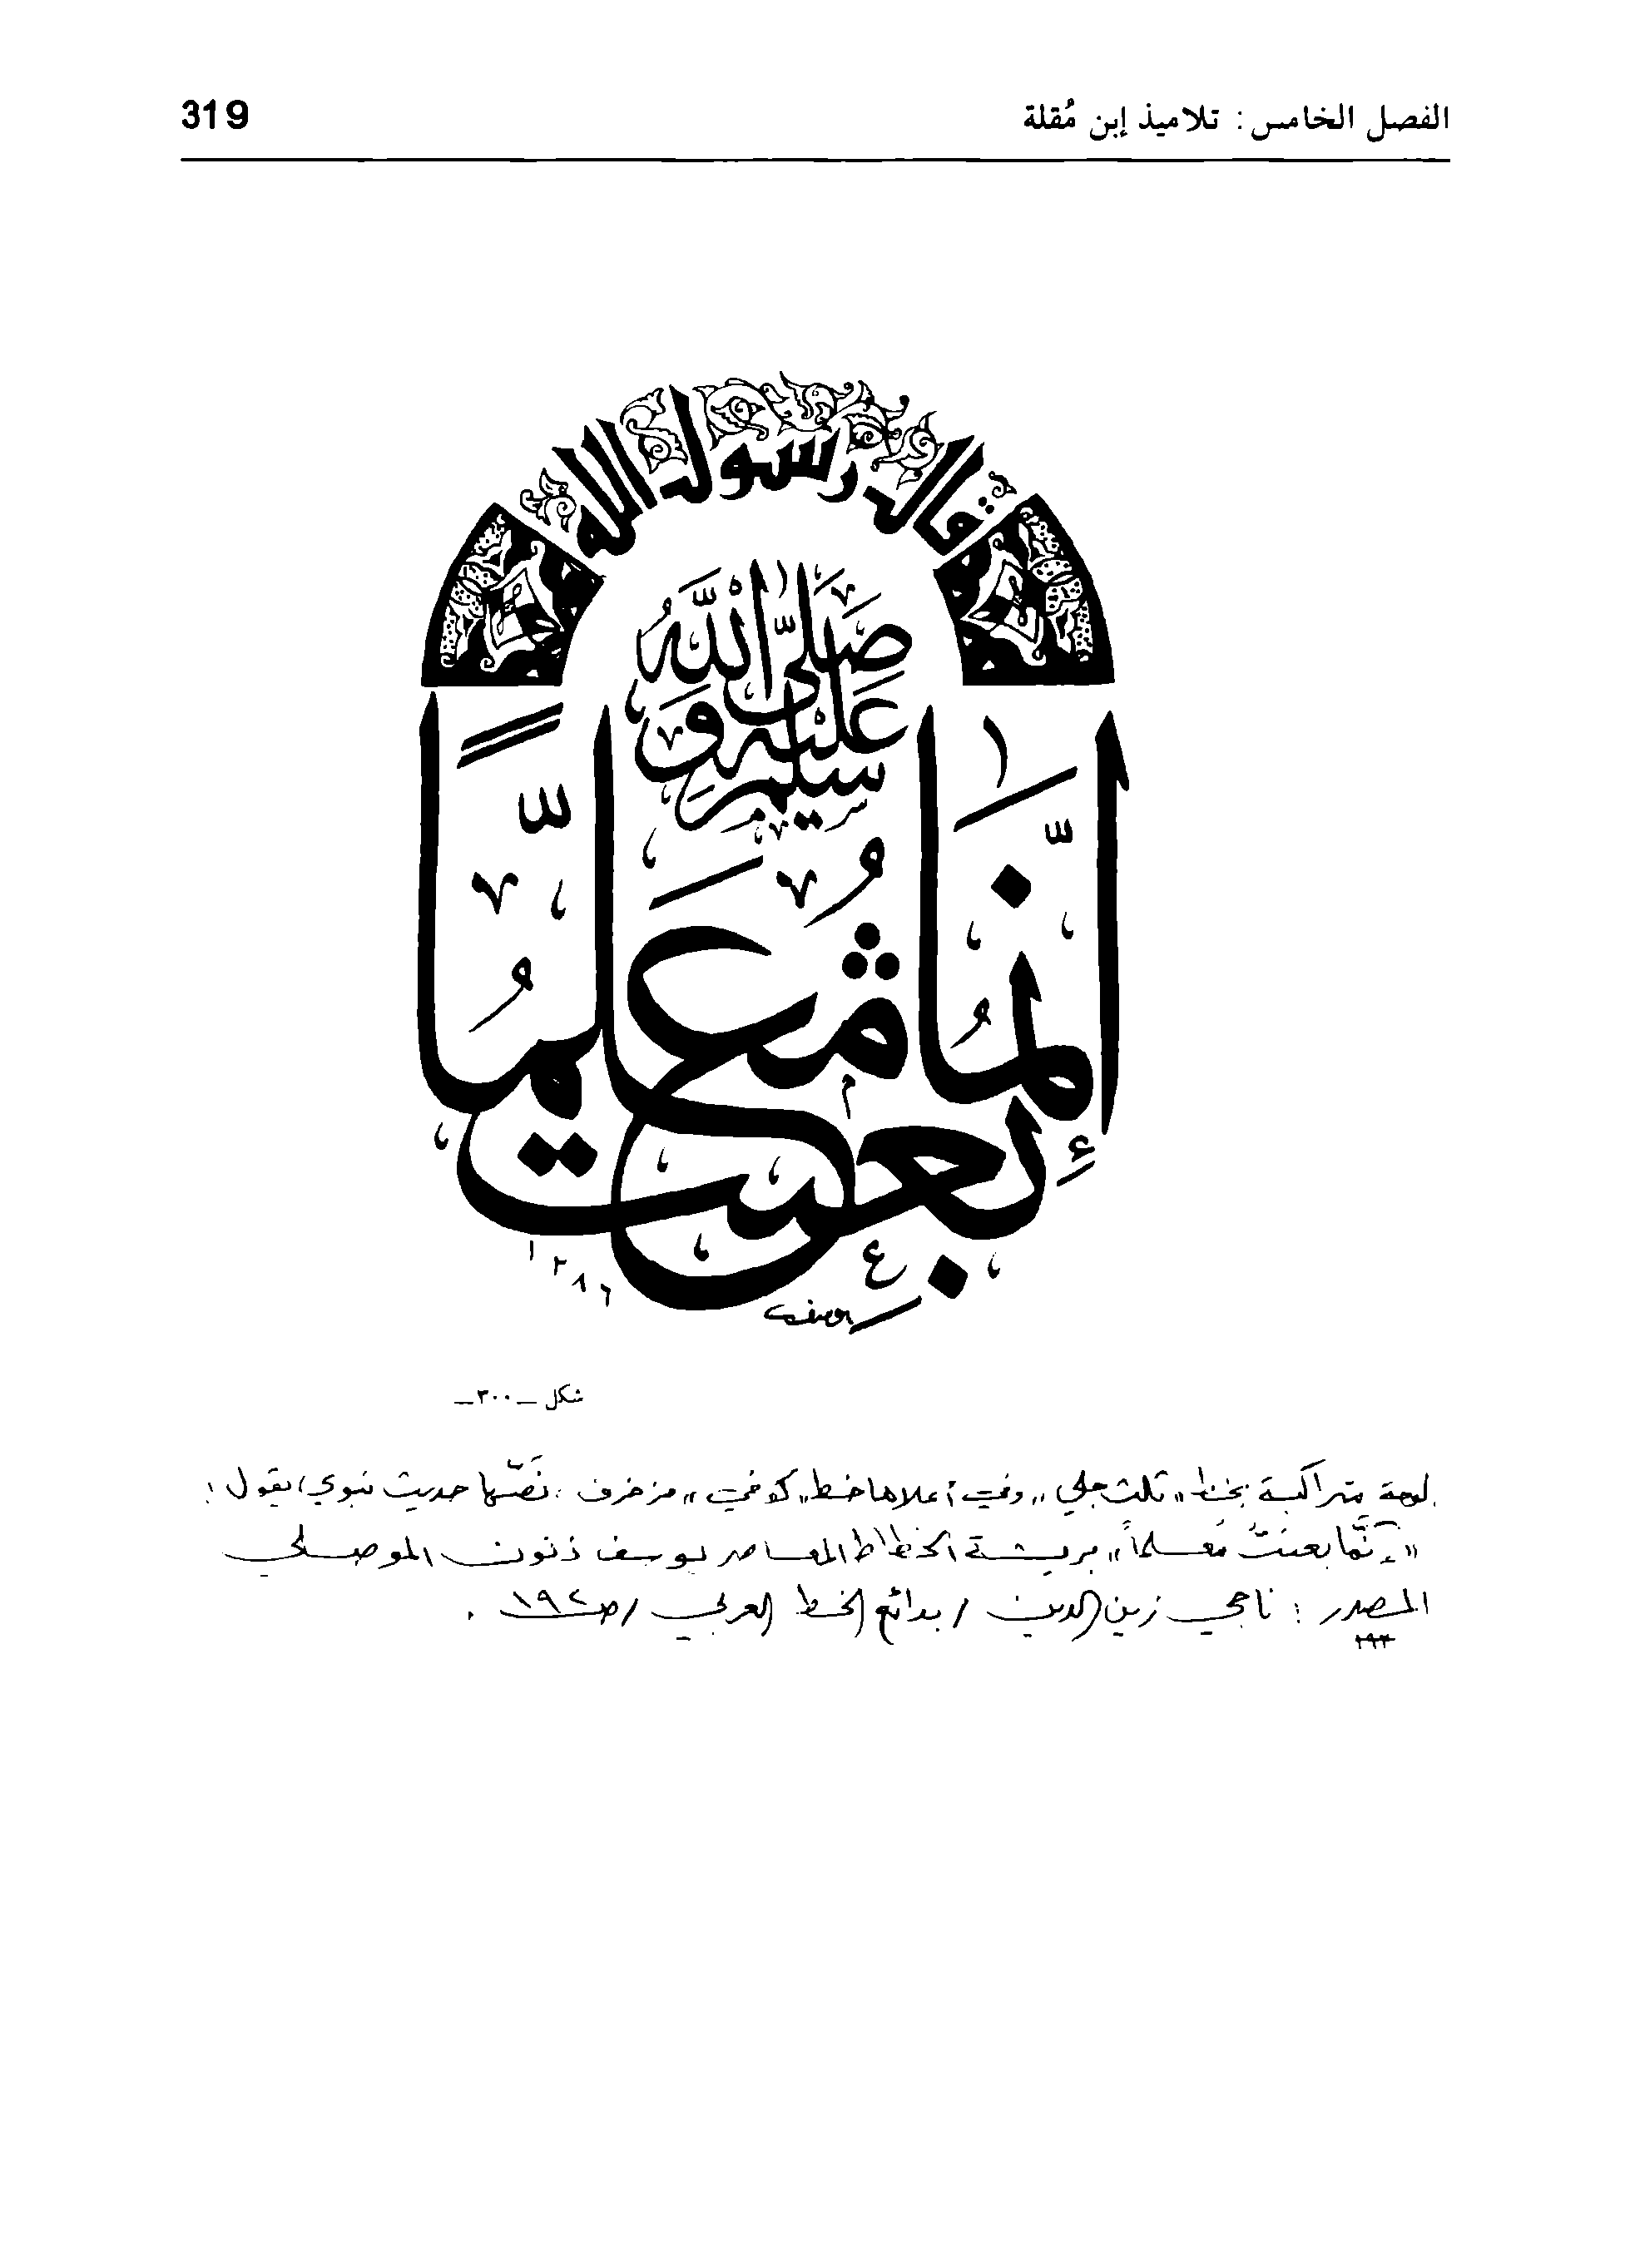 الفصل الخامس: تلاميذ إبن مُقلة
319
قال رسول الله
صَلَّى اللهُ
عَلَيْهِ وَ
سَلَّمَ
إنَّمَا
بُعِثْتُ
مُعَلِّمًا
يوسف
١٣٨٦
شكل _٣٠٠_
لوحة متراكبة بخط "ثلث جلي" وفي أعلاها خط "كوفي" مزخرف. نَصّها حديث نبوي يقول:
"إنّما بعثتُ مُعلماً" بريشة الخطاط المعاصر يوسف ذنون الموصلي
المصدر: ناجي زين الدين / بدائع الخط العربي /
٢٩٣